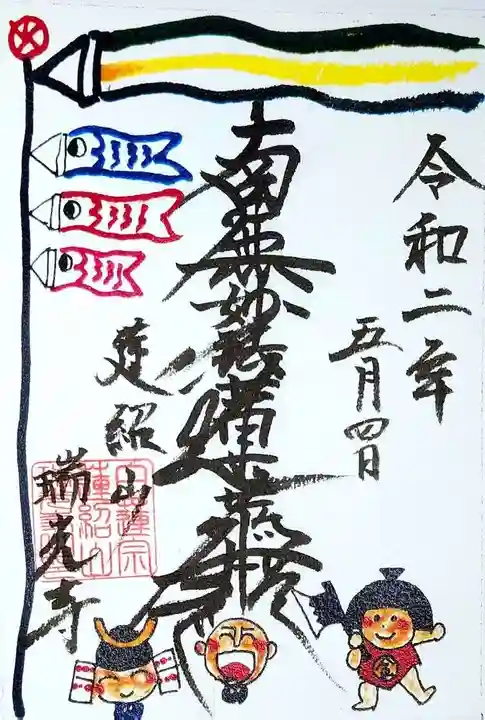 令和二年
五月四日
南無妙法蓮華経
蓮紹山
瑞光寺
日蓮宗
蓮紹山
金